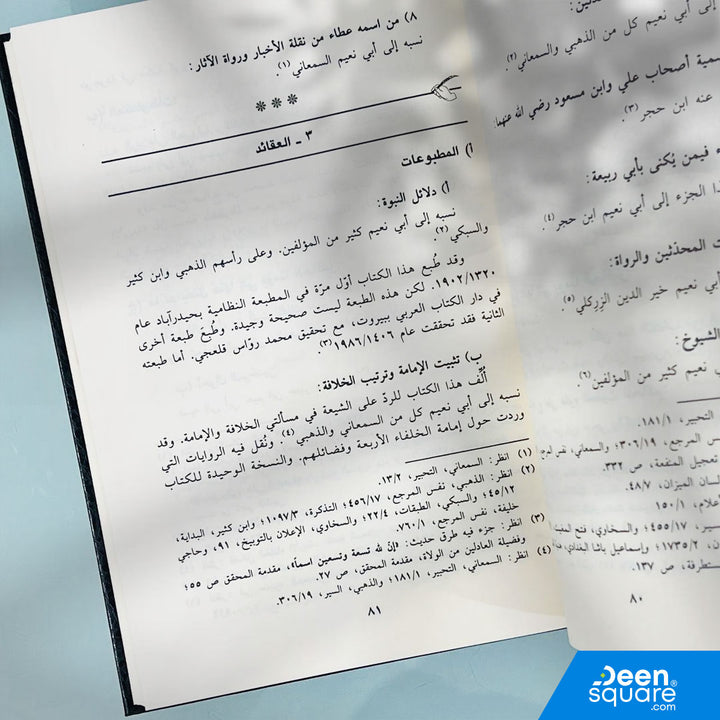 ذثين:
إلى أبي نعيم كل من الذهبي والسمعاني (٢).
سمية أصحاب علي وابن مسعود رضي الله عنهما:
عنه ابن حجر (٣).
ء فيمن يُكنى بأبي ربيعة:
ذا الجزء إلى أبي نعيم ابن حجر (٤).
ت المحدّثين والرواة:
أبي نعيم خير الدين الزركلي (٥).
الشيوخ:
ي نعيم كثير من المؤلفين (٦).
التحبير، ١٨١/١.
س المرجع، ٣٠٦/١٩؛ والسمعاني، نفس المرجع
تعجيل المنفعة، ص ٣٣٢.
لسان الميزان، ٤٨/٧.
أعلام، ١٥٠/١
سير، ٤٥٥/١٧؛ والسخاوي، فتح المغيث
ن، ١٧٣٥/٢؛ وإسماعيل باشا البغدادي،
ستطرفة، ص ١٣٧.
٨٠
٨) من اسمه عطاء من نقلة الأخبار ورواة الآثار:
نسبه إلى أبي نعيم السمعاني (١).
***
٣ - العقائد
أ) المطبوعات
أ) دلائل النبوة:
نسبه إلى أبي نعيم كثير من المؤلفين. وعلى رأسهم الذهبي وابن كثير
والسبكي (٢).
وقد طُبع هذا الكتاب أوّل مرّة في المطبعة النظامية بحيدرآباد عام
١٩٠٢/١٣٢٠. لكن هذه الطبعة ليست صحيحة وجيدة. وطُبعَ طبعة أخرى
في دار الكتاب العربي ببيروت، مع تحقيق محمد روّاس قلعجي. أما طبعته
الثانية فقد تحققت عام ١٩٨٦/١٤٠٦ (٣).
ب) تثبيت الإمامة وترتيب الخلافة:
أُلّف هذا الكتاب للردّ على الشيعة في مسألتي الخلافة والإمامة. وقد
نسبه إلى أبي نعيم كل من السمعاني والذهبي (٤). ونُقل فيه الروايات التي
وردت حول إمامة الخلفاء الأربعة وفضائلهم. والنسخة الوحيدة للكتاب
(١) انظر: السمعاني، التحبير، ١٣/٢.
(٢) انظر: الذهبي، نفس المرجع، ٤٥٦/١٧؛ التذكرة، ١٠٩٧/٣؛ وابن كثير، البداية،
٤٥/١٢؛ والسبكي، الطبقات، ٢٢/٤؛ والسخاوي، الإعلان بالتوبيخ، ٩١، وحاجي
خليفة، نفس المرجع، ٧٦٠/١.
(٣) انظر: جزء فيه طرق حديث: «إنّ لله تسعة وتسعين اسماً»، مقدمة المحقق ص ٥٥؛
وفضيلة العادلين من الولاة، مقدمة المحقق، ص ٢٧.
(٤) انظر: السمعاني، التحبير، ١٨١/١؛ والذهبي، السير، ٣٠٦/١٩.
٨١
Deen
square®
.com